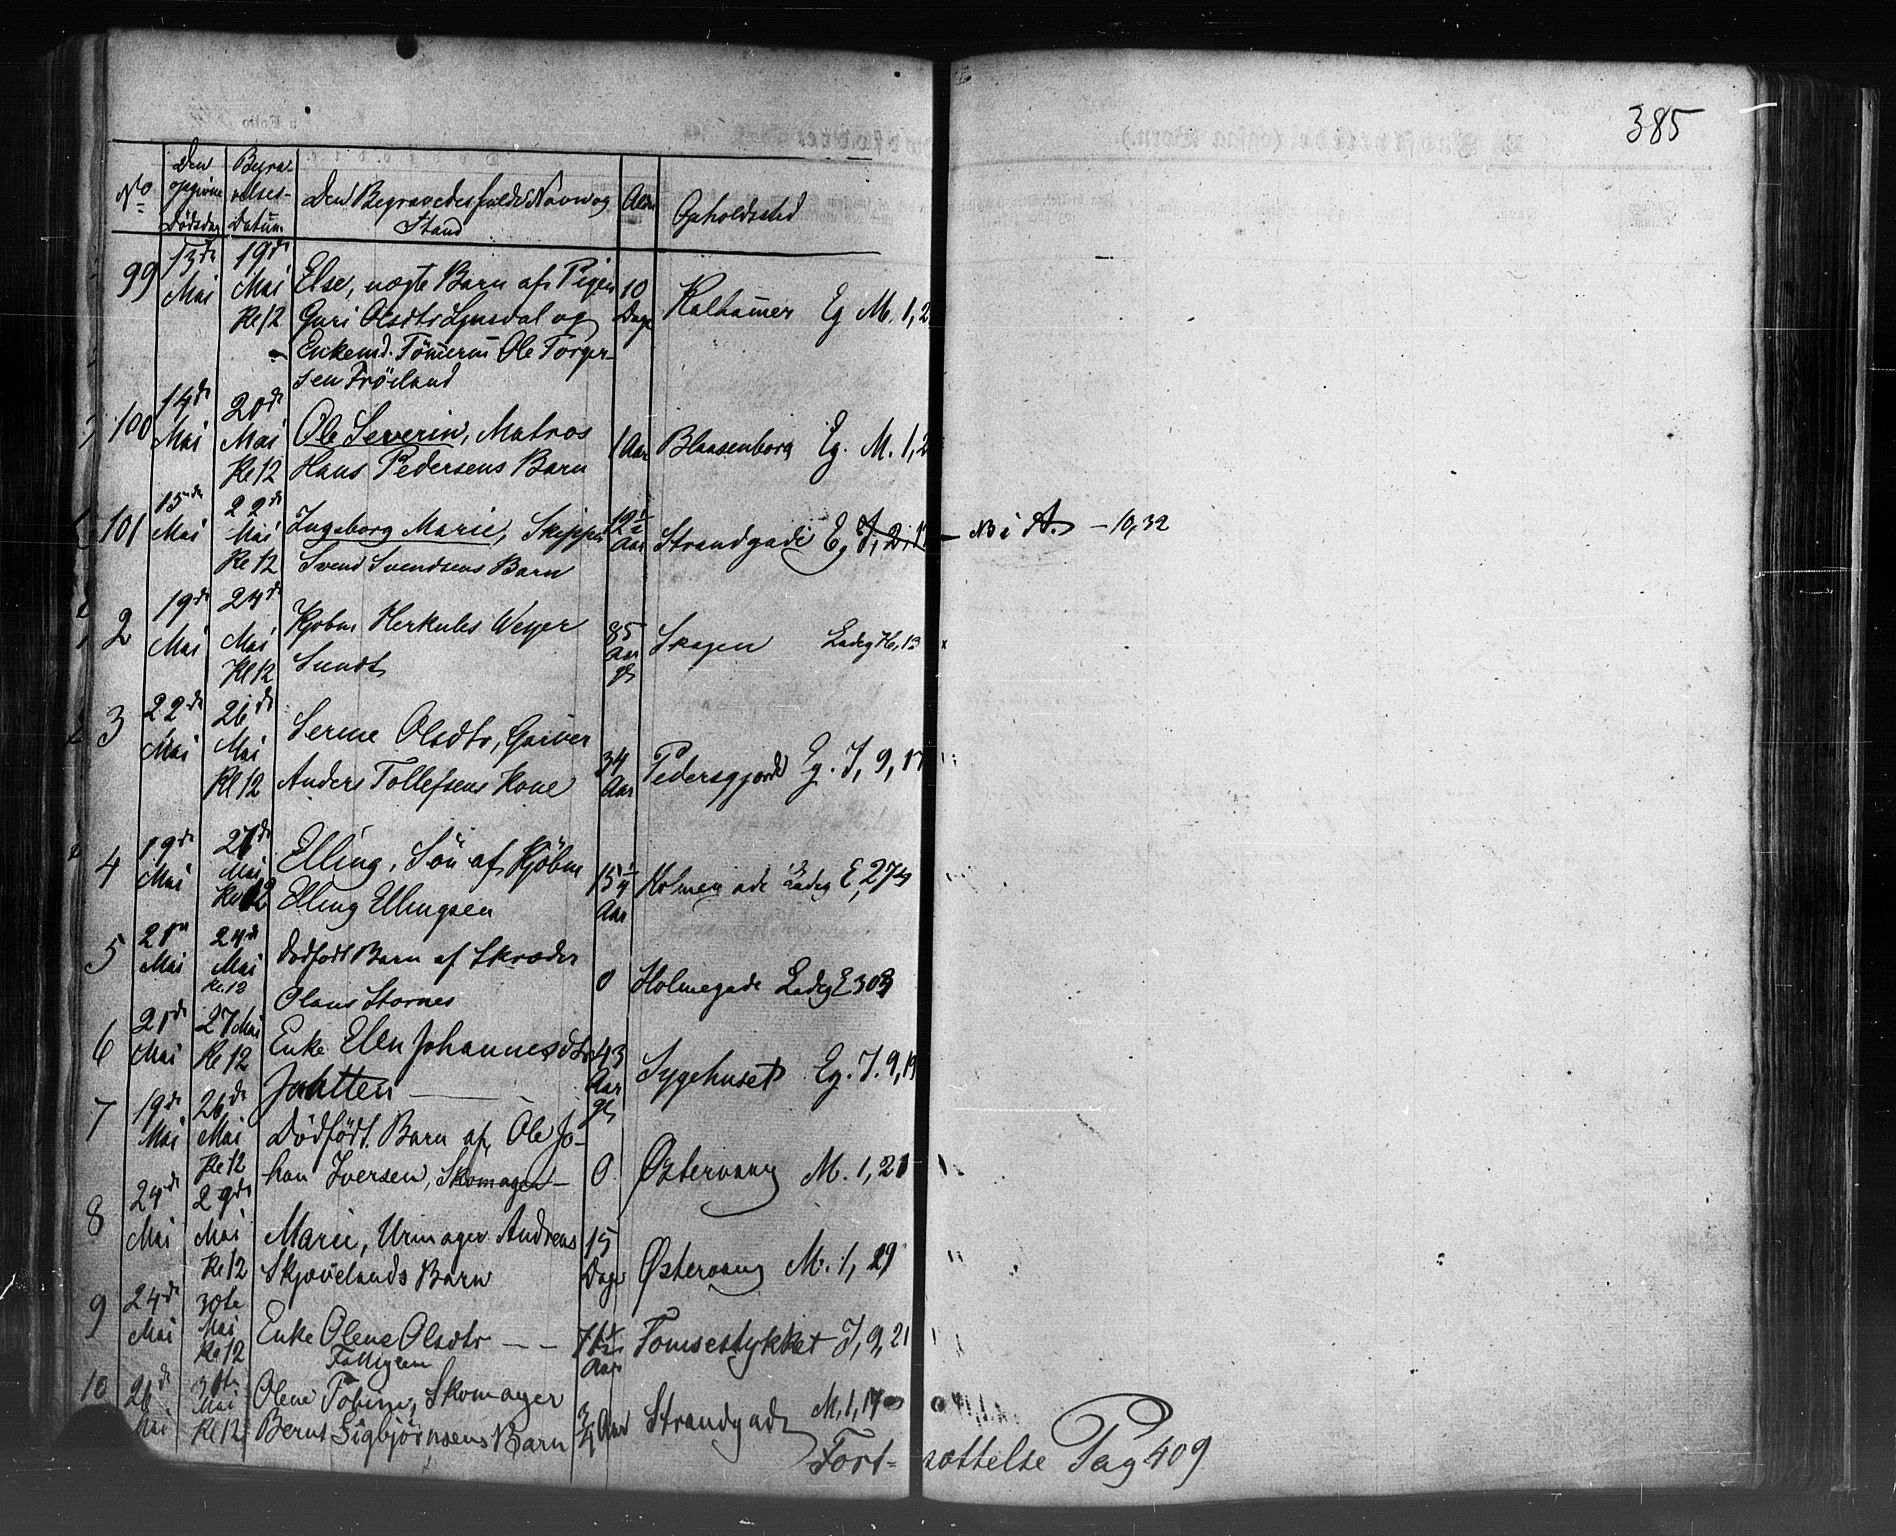 385
No Den opgivne Dödsdag Begravelses-Datum Den Begravedes fulde Navn og Stand Alder Opholdssted
99 13de Mai 19de Mai Kl 12 Else, uægte Barn af Pigen 10 Dage Kalhammer Eg M. 1, 2
Guri Olsdtr Lyusdal og
Enkemd. Tömerm Ole Torger-
sen Fröiland
100 14de Mai 20de Mai Kl 12 Ole Severin, Matros 1 Aar Blaasenborg Eg. M. 1, 2
Hans Pedersens Barn
101 15de Mai 22de Mai Kl 12 Ingeborg Marie, Skipper 12½ Aar Strandgade Eg – 10,32
Svend Svendsens Barn
2 19de Mai 24de Mai Kl 12 Kjöbm Herkules Weyer 85 Aar gl Skagen Ladeg H, 13
Sundt
3 22de Mai 26de Mai Kl 12 Serine Olsdtr, Garver 34 Aar Pedersgjerde Eg. I, 9, 17
Anders Tollefsens Kone
4 19de Mai 27de Mai Kl 12 Elling, Sön af Kjöbm 15¼ Aar Holmegade Ladeg E, 274
Elling Ellingsen
5 21de Mai 24de Mai Kl. 12 Dödfödt Barn af Skræder 0 Holmegade Ladeg E 303
Olaus Stornes
6 21de Mai 27 Mai Kl 12 Enke Elen Johannesdtr 43 Aar gl Sygehuset Eg. I. 9, 19
Jahtten
7 19de Mai 26de Mai Kl 12 Dödfödt Barn af Ole Jo- 0 Østervaag M. 1, 21
han Iversen, Skomager
8 24de Mai 29de Mai Kl 12 Marie, Urmager Andreas 15 Dage Østervaag M. 1, 29
Skjævelands Barn
9 24de Mai 30te Mai Kl 12 Enke Olene Olsdtr 71½ Aar Tomsestykket I, 9, 21
10 26de Mai 31te Mai Kl 12 Olene Tobine, Skomager ¾ Aar Strandgade M. 1, 17
Bernt Sigbjörnsens Barn
Fortsættelse Pag 409